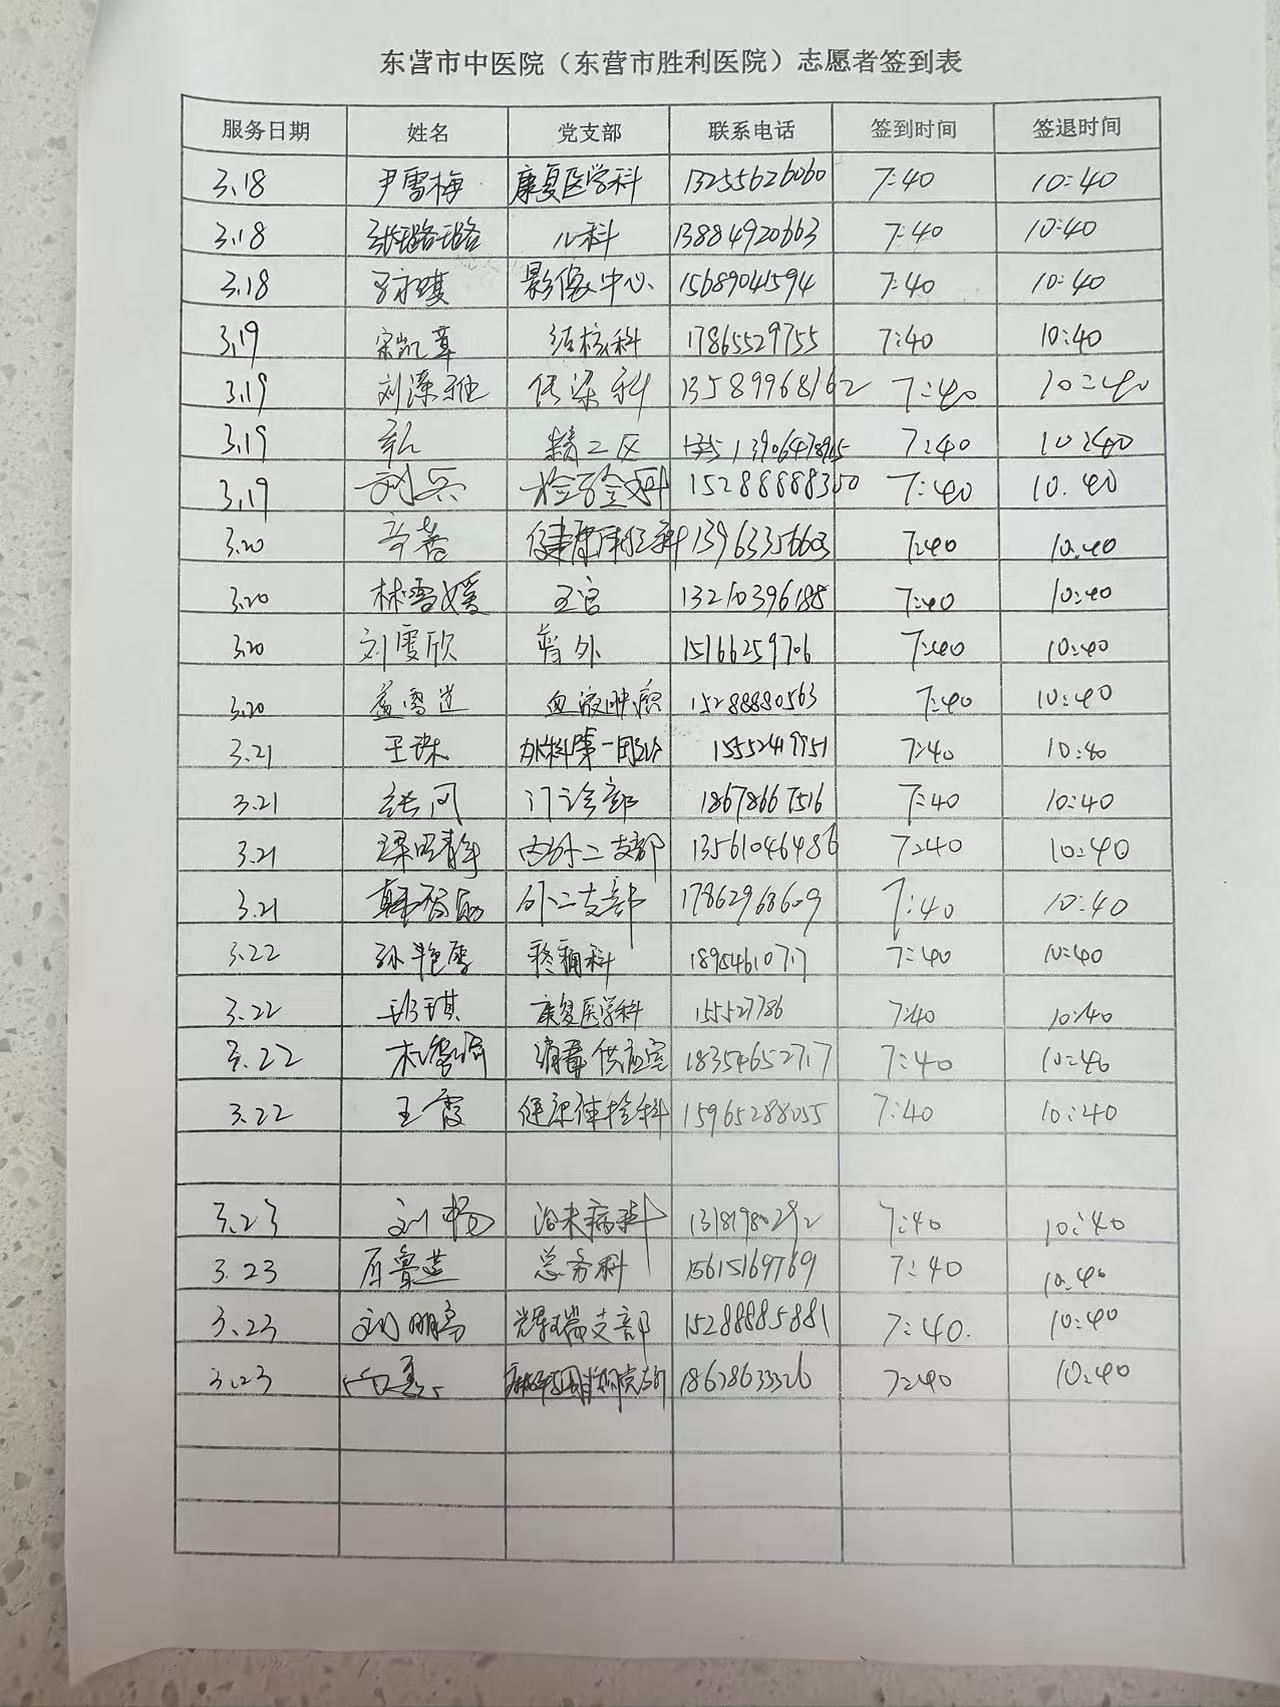 东营市中医院（东营市胜利医院）志愿者签到表
服务日期 姓名 党支部 联系电话 签到时间 签退时间
3.18 尹雪梅 康复医学科 13255626060 7:40 10:40
3.18 张璐璐 儿科 13884920663 7:40 10:40
3.18 影像中心 15689041594 7:40 10:40
3.19 宋凯章 结核科 17865529755 7:40 10:40
3.19 刘深雅 传染科 13589968162 7:40 10:40
3.19 精二区 7:40 10:40
3.19 刘兵 检验科 15288888350 7:40 10.40
3.20 13963356603 7:40 10:40
3.20 林雪媛 王官 13210396188 7:40 10:40
3.20 刘雯欣 普外 15166259706 7:40 10:40
3.20 血液肿瘤 15288880563 7:40 10:40
3.21 王珠 外科第一 7:40 10:40
3.21 张问 门诊部 18678667516 7:40 10:40
3.21 二支部 13561046486 7:40 10:40
3.21 外二支部 17862968609 7:40 10:40
3.22 孙艳 疼痛科 18954610717 7:40 10:40
3.22 琪 康复医学科 155527786 7:40 10:40
3.22 消毒供应室 18354652717 7:40 10:40
3.22 王霞 健康体检科 15965288055 7:40 10:40
3.23 刘杨 治未病科 13181980292 7:40 10:40
3.23 总务科 15615169769 7:40 10:40
3.23 刘鹏 辉瑞支部 15288885881 7:40. 10:40
3.23 7:40 10:40